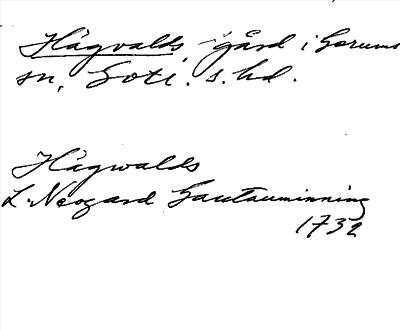 Hågvalds gård i Gerums
sn, Gotl. s. hd.
Hågwalds
L. Neogard Gautauminning
1732